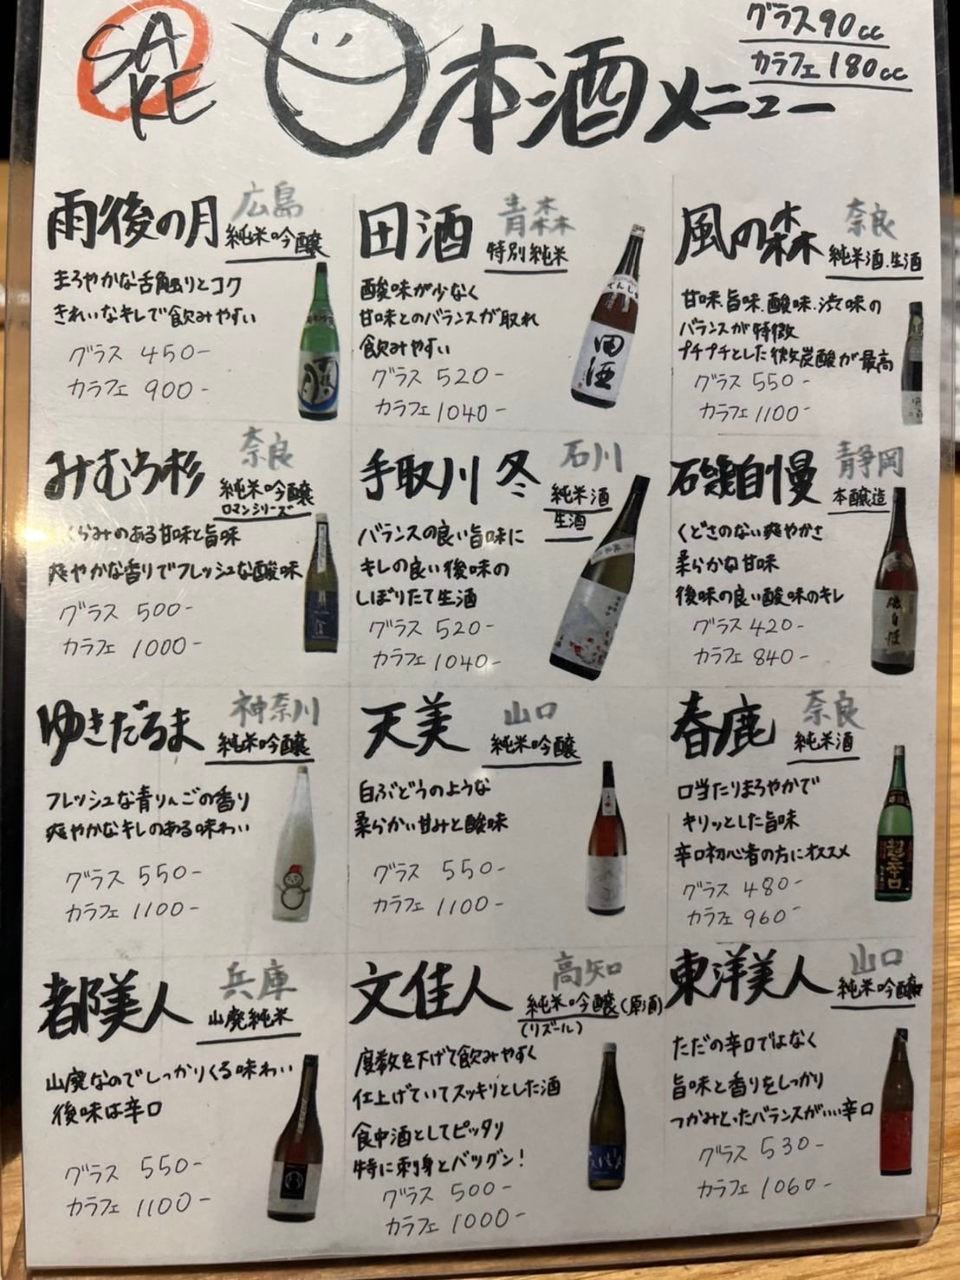 SAKE
日本酒メニュー
グラス90cc
カラフェ180cc
雨後の月 広島
純米吟醸
まろやかな舌触りとコク
きれいなキレで飲みやすい
グラス 450-
カラフェ 900-
田酒 青森
特別純米
酸味が少なく
甘味とのバランスが取れ
飲みやすい
グラス 520-
カラフェ 1040-
風の森 奈良
純米酒.生酒
甘味.旨味.酸味.渋味の
バランスが特徴
プチプチとした微炭酸が最高
グラス 550-
カラフェ 1100-
みむろ杉 奈良
純米吟醸
ロマンシリーズ
ふくらみのある甘味と旨味
爽やかな香りでフレッシュな酸味
グラス 500-
カラフェ 1000-
手取川 冬 石川
純米酒
生酒
バランスの良い旨味に
キレの良い後味の
しぼりたて生酒
グラス 520-
カラフェ 1040-
磯自慢 静岡
本醸造
くどさのない爽やかさ
柔らかな甘味
後味の良い酸味のキレ
グラス 420-
カラフェ 840-
ゆきだるま 神奈川
純米吟醸
フレッシュな青りんごの香り
爽やかなキレのある味わい
グラス 550-
カラフェ 1100-
天美 山口
純米吟醸
白ぶどうのような
柔らかい甘みと酸味
グラス 550-
カラフェ 1100-
春鹿 奈良
純米酒
口当たりまろやかで
キリッとした旨味
辛口初心者の方にオススメ
グラス 480-
カラフェ 960-
都美人 兵庫
山廃純米
山廃なのでしっかりくる味わい
後味は辛口
グラス 550-
カラフェ 1100-
文佳人 高知
純米吟醸(原酒)
(リズール)
度数を下げて飲みやすく
仕上げていてスッキリとした酒
食中酒としてピッタリ
特に刺身とバツグン!
グラス 500-
カラフェ 1000-
東洋美人 山口
純米吟醸
ただの辛口ではなく
旨味と香りをしっかり
つかみとったバランスがいい辛口
グラス 530-
カラフェ 1060-
田酒
超辛口